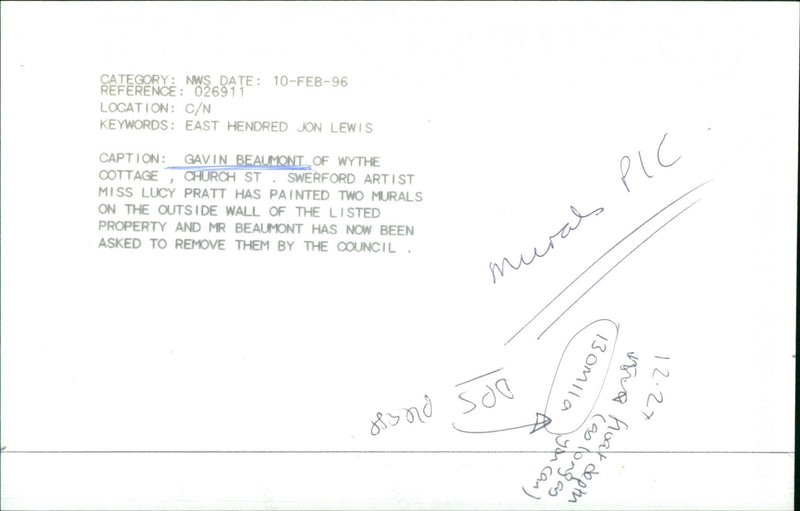 CATEGORY: NWS DATE: 10-FEB-96
REFERENCE: 026911
LOCATION: C/N
KEYWORDS: EAST HENDRED JON LEWIS
CAPTION: GAVIN BEAUMONT OF WYTHE
COTTAGE , CHURCH ST . SWERFORD ARTIST
MISS LUCY PRATT HAS PAINTED TWO MURALS
ON THE OUTSIDE WALL OF THE LISTED
PROPERTY AND MR BEAUMONT HAS NOW BEEN
ASKED TO REMOVE THEM BY THE COUNCIL .
Murals PIC
DPS please
12.2x
(as long as
you can)